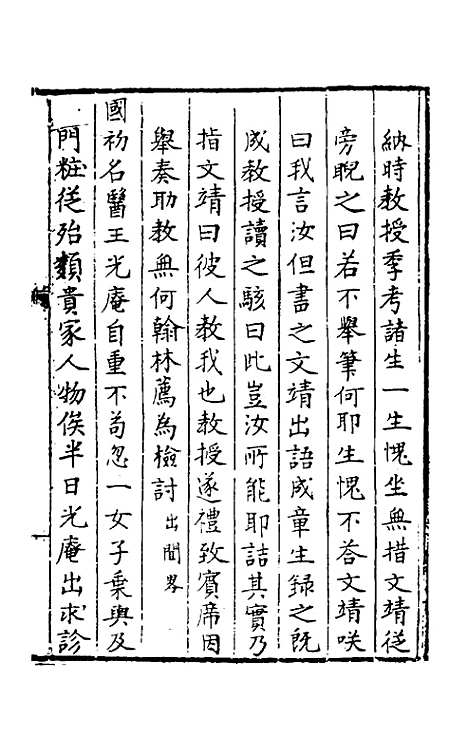 納時教授季考諸生一生愧坐無措文靖從
旁睨之曰若不舉筆何耶生愧不荅文靖咲
曰我言汝但書之文靖出語成章生録之既
成教授讀之駭曰此豈汝所能耶詰其實乃
指文靖曰彼人教我也教授遂禮致賓席因
舉奏助教無何翰林薦為檢討出閒畧
國初名醫王光庵自重不苟忽一女子乗輿及
門粧從殆類貴家人物俟半日光庵出求診